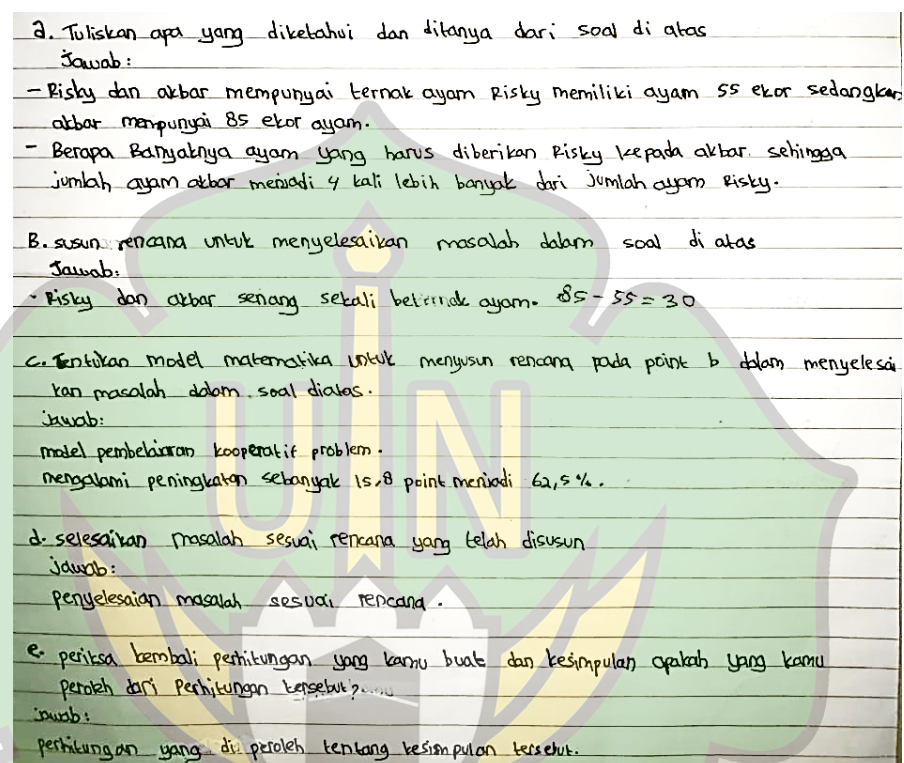 a. Tuliskan apa yang diketahui dan ditanya dari soal di atas
Jawab:
- Risky dan akbar mempunyai ternak ayam Risky memiliki ayam 55 ekor sedangkan
akbar mempunyai 85 ekor ayam.
- Berapa Banyaknya ayam yang harus diberikan Risky kepada akbar. sehingga
jumlah ayam akbar menjadi 4 kali lebih banyak dari Jumlah ayam Risky.
B. susun rencana untuk menyelesaikan masalah dalam soal di atas
Jawab:
- Risky dan akbar senang sekali beternak ayam. 85 - 55 = 30
c. Tentukan model matematika untuk menyusun rencana pada point b dalam menyelesai
kan masalah dalam soal diatas.
jawab:
model pembelajaran kooperatif problem.
mengalami peningkatan sebanyak 15,8 point menjadi 62,5 %.
d. selesaikan masalah sesuai rencana yang telah disusun
jawab:
penyelesaian masalah sesuai rencana.
e. periksa kembali perhitungan yang kamu buat dan kesimpulan apakah yang kamu
peroleh dari Perhitungan tersebut?.....
jawab:
perhitungan yang di peroleh tentang kesimpulan tersebut.
UIN